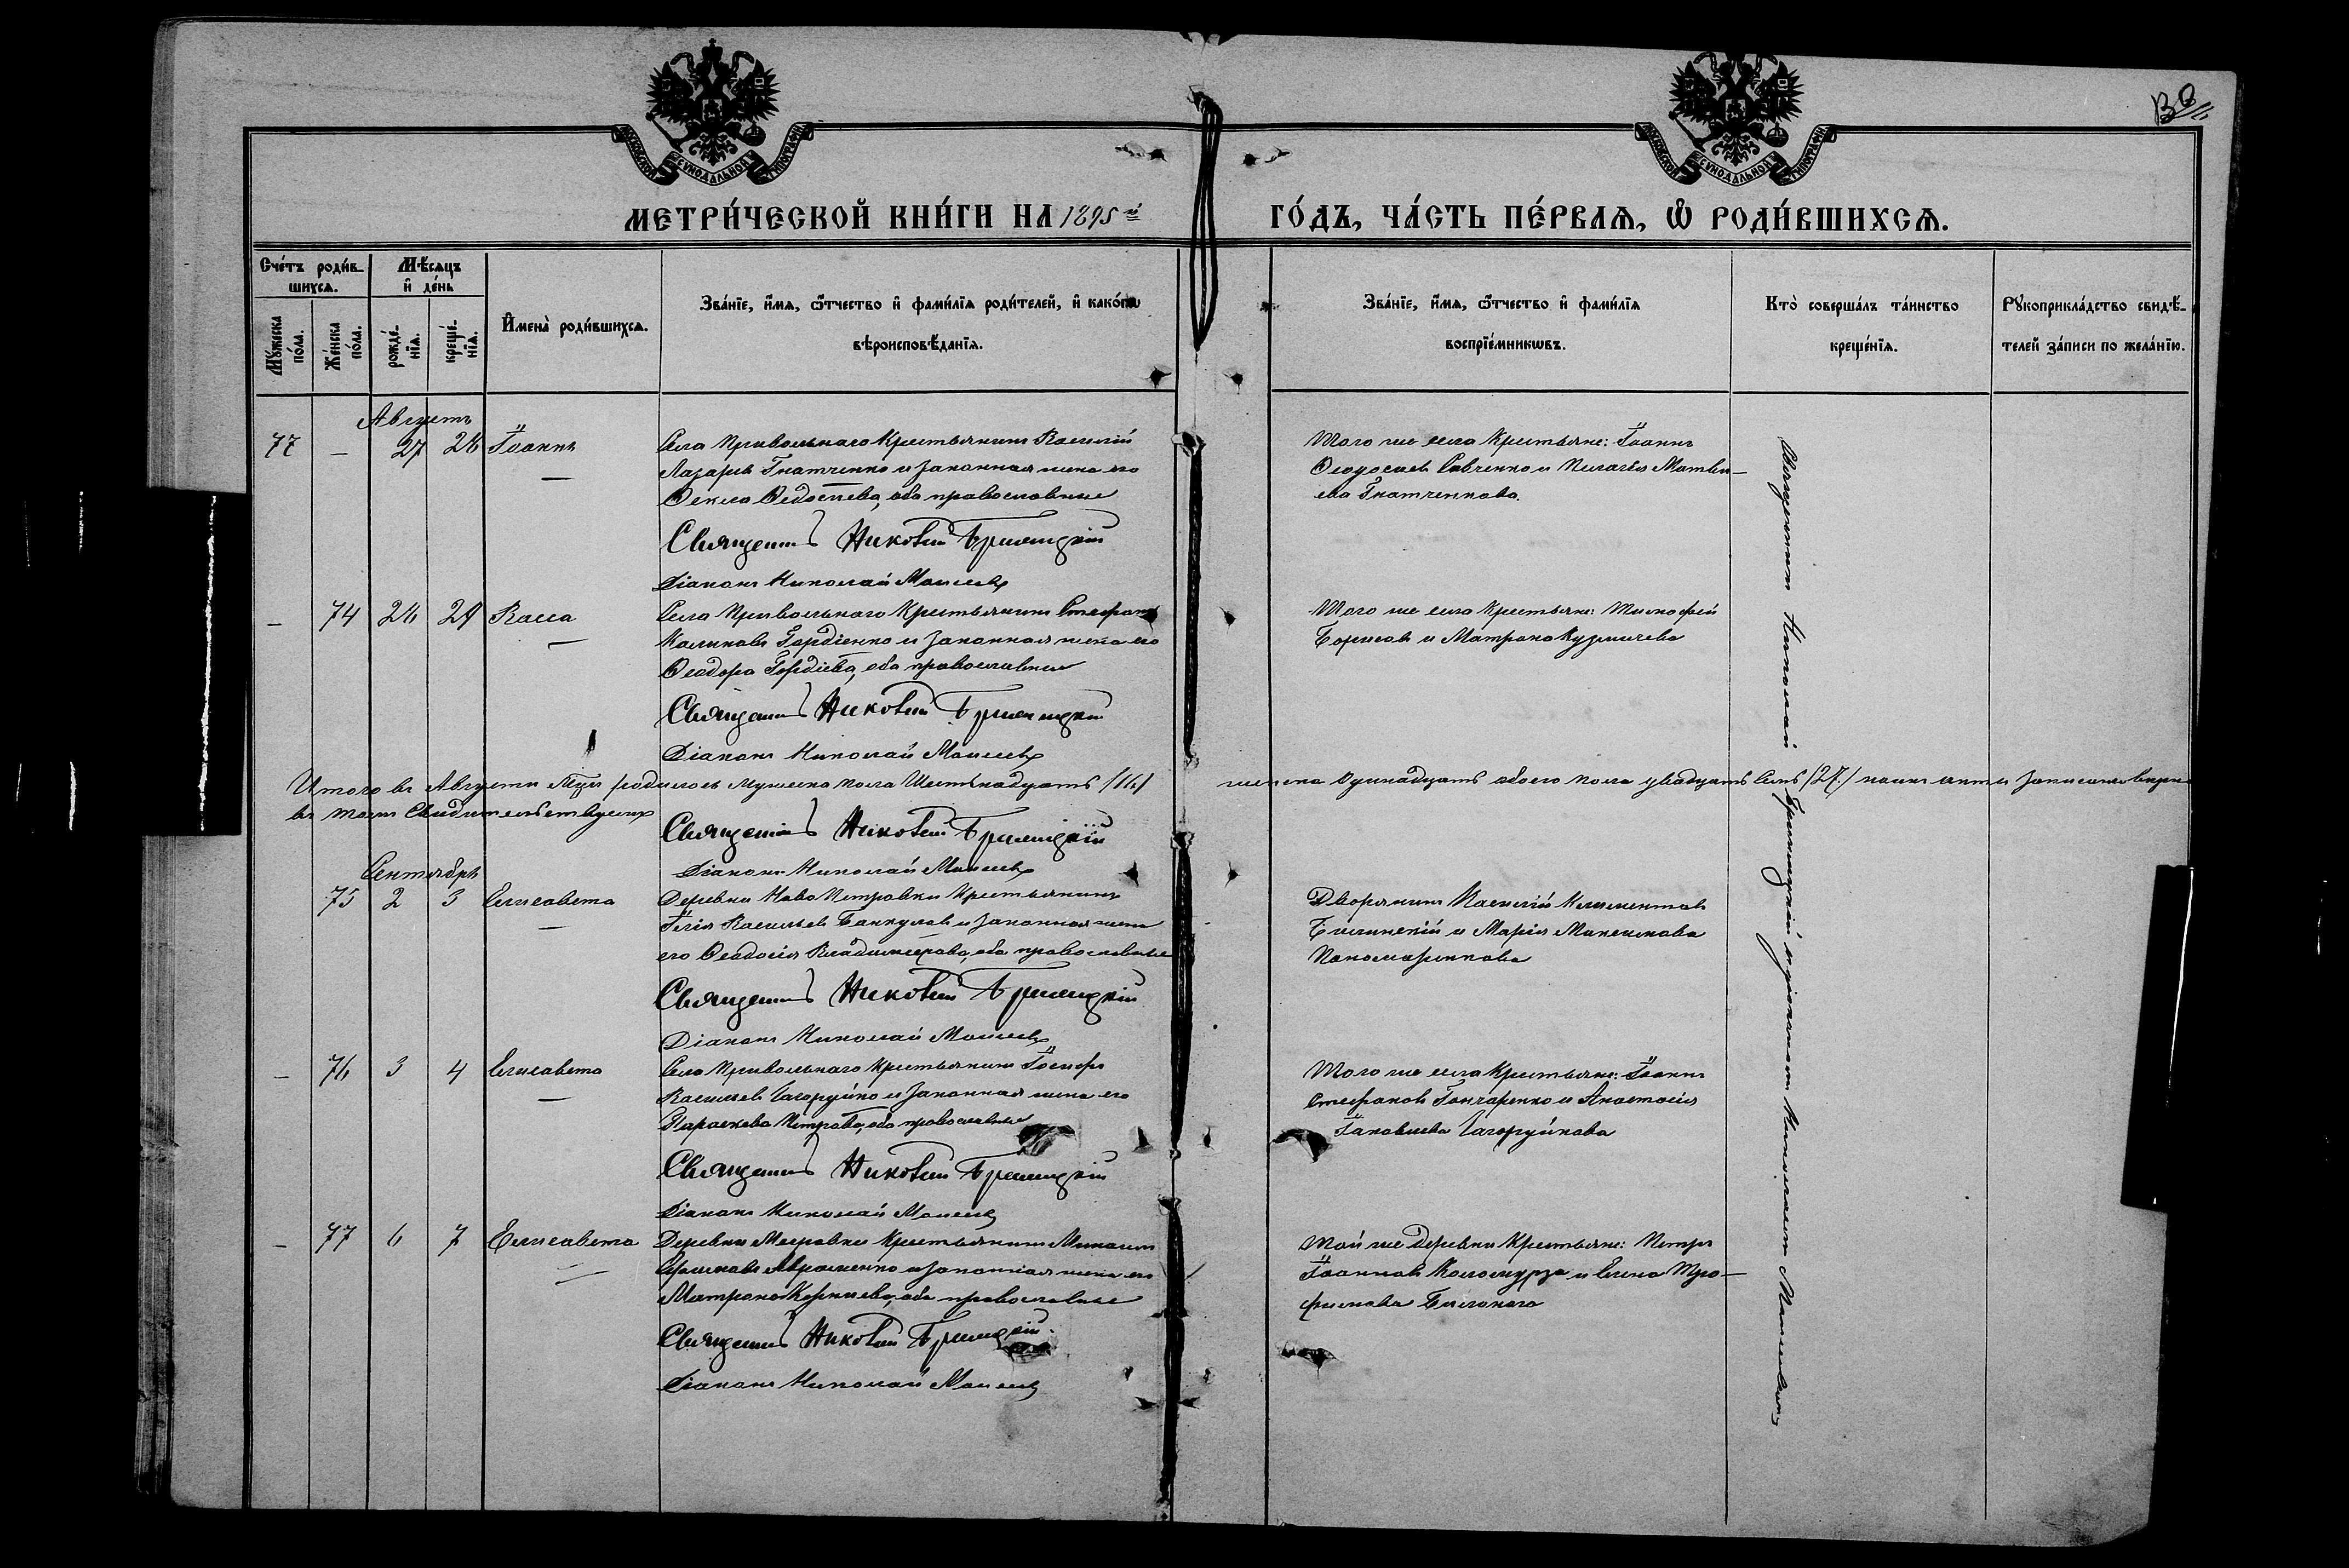 МЕТРИ́ЧЕСКОЙ КНИ́ГИ НА 1895й ГО́ДЪ, ЧА́СТЬ ПЕ́РВАѦ, Ѡ҆ РОДИ́ВШИХСѦ.
Сче́тъ роди́в-
шихсѧ.
Мꙋ́жеска
по́ла.
Же́нска
по́ла.
Мѣ́сѧцъ
и҆ де́нь
рожде́-
нїѧ.
креще́-
нїѧ.
И҆мена̀ роди́вшихсѧ.
Зва́нїе, и҆́мѧ, ѻ҆́тчество и҆ фами́лїѧ роди́телей, и҆ како́гѡ
вѣроисповѣ́данїѧ.
Зва́нїе, и҆́мѧ, ѻ҆́тчество и҆ фами́лїѧ
воспрїе́мникѡвъ.
Кто̀ соверша́лъ та́инство
креще́нїѧ.
Рꙋкоприкла́дство свидѣ́-
телей за́писи по жела́нїю.
Августъ
77 — 27 28 Іоаннъ
Села Привольнаго Крестьянинъ Василій
Лазаревъ Гнатченко и законная жена его
Ѳекла Ѳедосіева, оба православные
Священникъ Николай
Діаконъ Николай Моисеевъ
Того же села Крестьяне: Іоаннъ
Ѳеодосіевъ Савченко и Пелагія Матвѣ-
ева Гнатченкова
— 74 28 29 Васса
Села Привольнаго Крестьянинъ Стефанъ
Гордіенко и законная жена его
Ѳеодора Гордіева, оба православные
Священникъ Николай
Діаконъ Николай Моисеевъ
Того же села Крестьяне: Тимофей
Борисовъ и Матрона Кузмичева
Итого въ Августѣ м-цѣ родилось мужеска пола Шестьнадцать (16) женска одинадцать обоего пола двадцать семь (27) акты записаны вѣрно
въ томъ Свидѣтельствуемъ
Священникъ Николай
Діаконъ Николай Моисеевъ
Сентябрь
75 2 3 Елисавета
Деревни Ново Петровки Крестьянинъ
Васильевъ и законная жена
его Ѳеодосія Владимірова, оба православные
Священникъ Николай
Діаконъ Николай Моисеевъ
Дворянинъ Василій Климентовъ
и Марія Максимова
Пономаренкова
— 76 3 4 Елисавета
Села Привольнаго Крестьянинъ Іосифъ
Васильевъ Чагоруйко и законная жена его
Параскева Петрова, оба православные
Священникъ Николай
Діаконъ Николай Моисеевъ
Того же села Крестьяне: Іоаннъ
Стефановъ Гончаренко и Анастасія
Іаковлева Чагоруйкова
— 77 6 7 Елисавета
Деревни Крестьянинъ Михаилъ
Авраменко и законная жена его
Матрона Корнѣева, оба православные
Священникъ Николай
Діаконъ Николай Моисеевъ
Той же деревни Крестьяне: Петръ
Іоанновъ Коломурза и Елена Тро-
фимова
Священникъ Николай и діаконъ Николай Моисеевъ